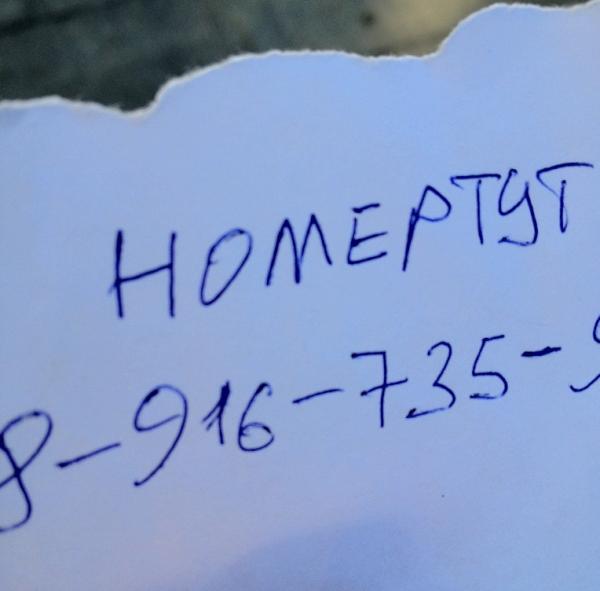 НОМЕРТУТ
8-916-735-